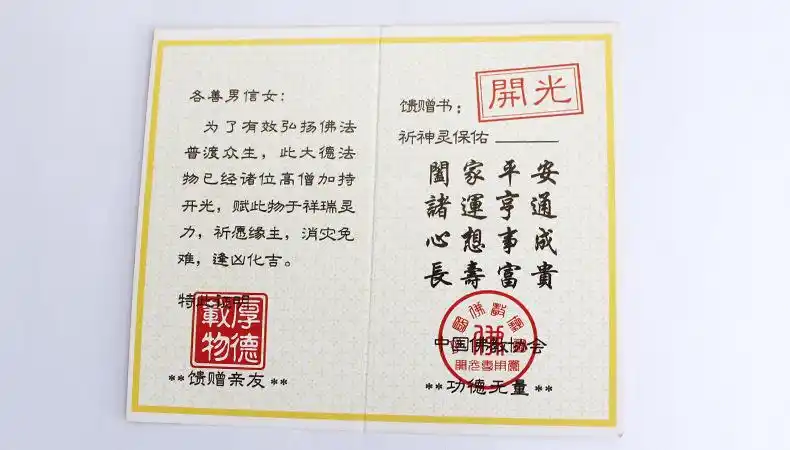 各善男信女：
为了有效弘扬佛法
普渡众生，此大德法
物已经诸位高僧加持
开光，赋此物于祥瑞灵
力，祈愿缘主，消灾免
难，逢凶化吉。
特此证明
厚德載物
**馈赠亲友**
馈赠书：
開光
祈神灵保佑
闔家平安
諸運亨通
心想事成
長壽富貴
中国佛教协会
**功德无量**